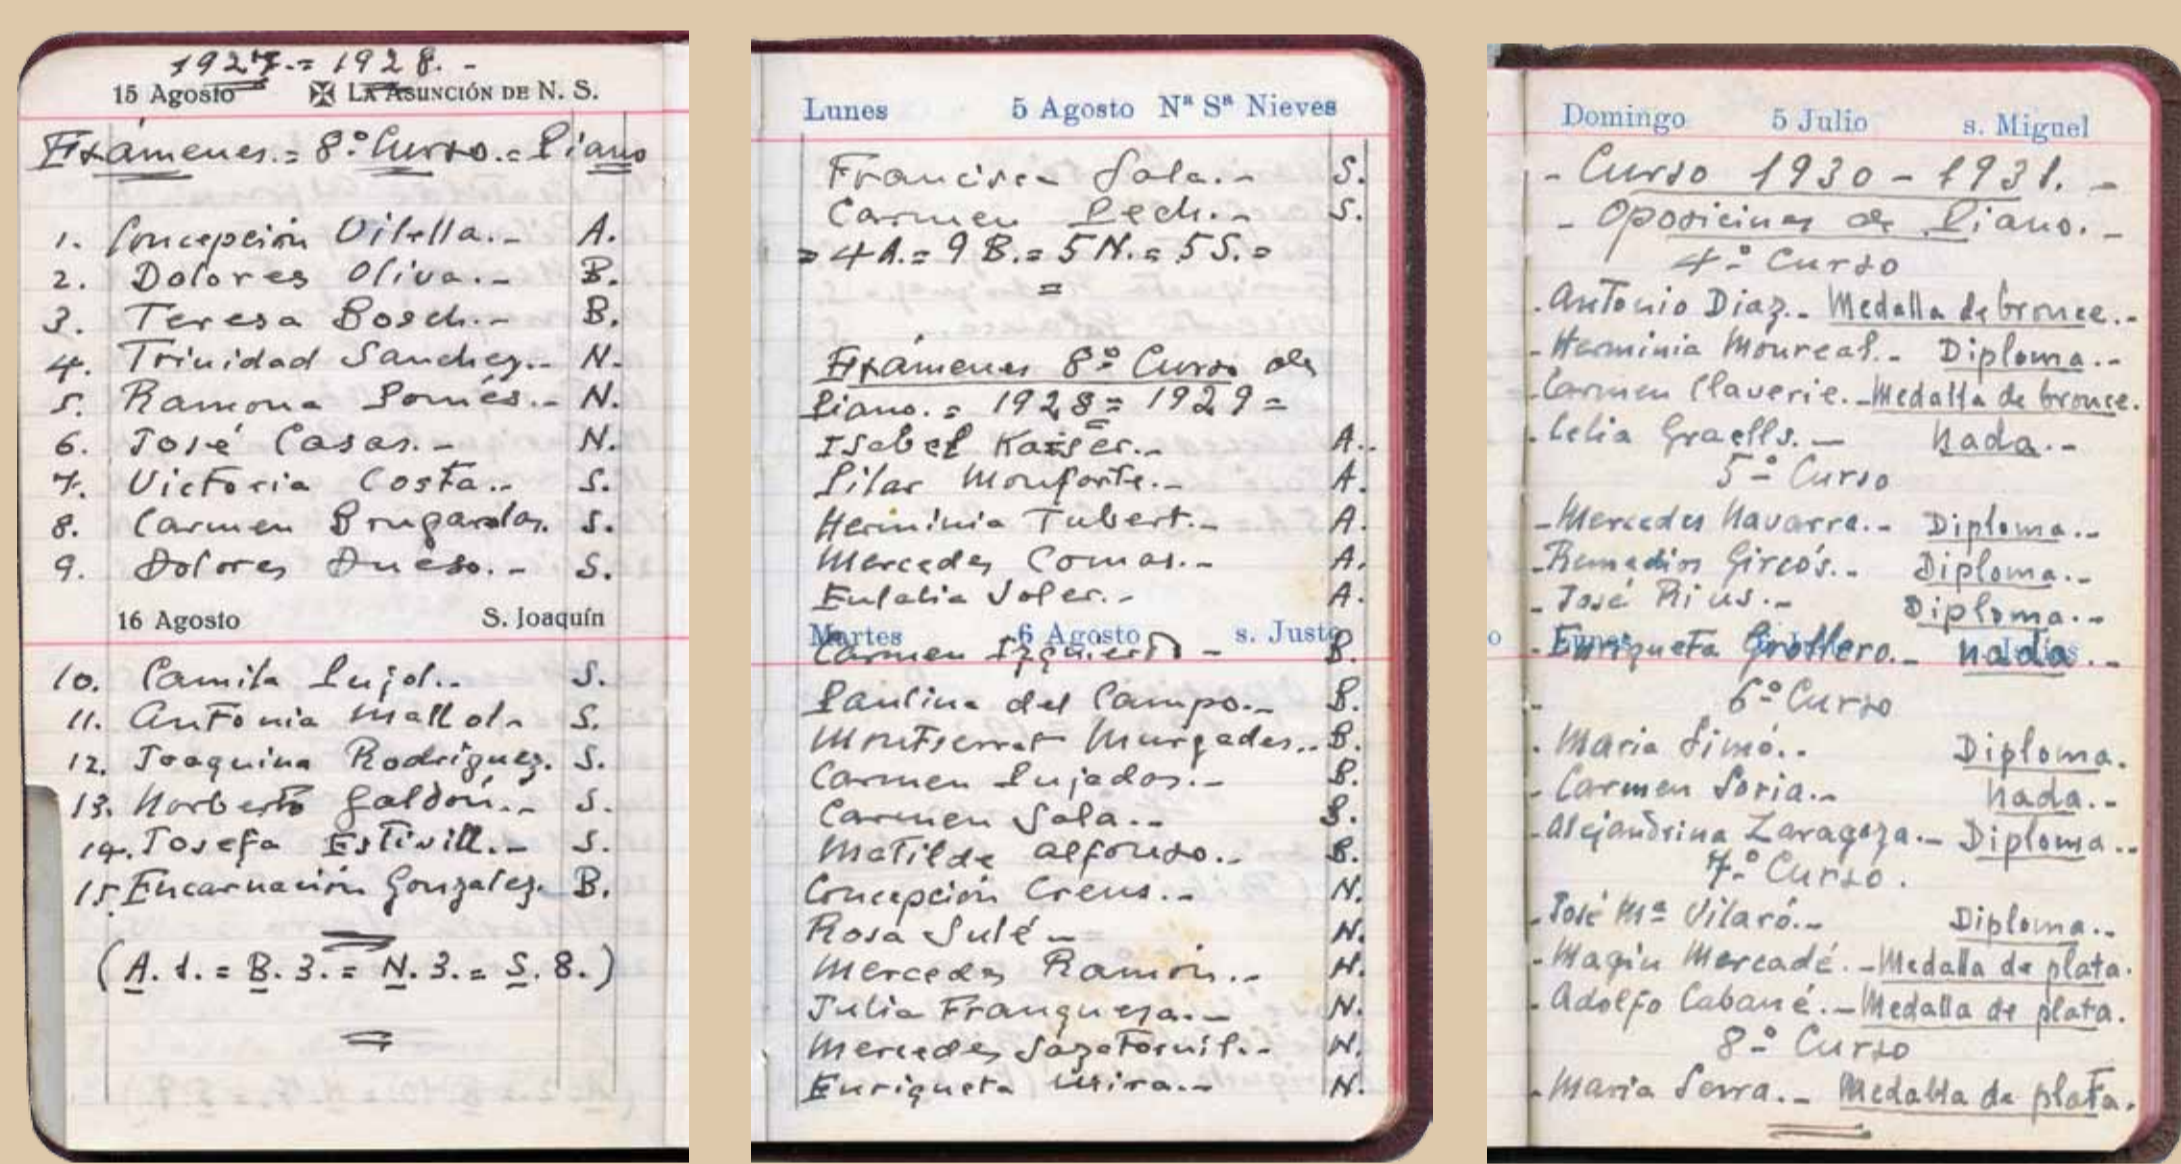 1927.= 1928.-
15 Agosto ✠ LA ASUNCIÓN DE N. S.
Exámenes.= 8º Curso.= Piano
1. Concepción Vilella.- A.
2. Dolores Oliva.- B.
3. Teresa Bosch.- B.
4. Trinidad Sanchez.- N.
5. Ramona Pomés.- N.
6. José Casas.- N.
7. Victoria Costa.- S.
8. Carmen Brugarolas. S.
9. Dolores Dueso.- S.
16 Agosto S. Joaquín
10. Camila Pujol.- S.
11. Antonia Mallol.- S.
12. Joaquina Rodriguez. S.
13. Norberto Galdón.- S.
14. Josefa Estivill.- S.
15. Encarnación Gonzalez. B.
(A. 1.= B. 3.= N. 3.= S. 8.)
Lunes 5 Agosto Nª Sª Nieves
Francisca Sala.- S.
Carmen Pech.- S.
= 4 A.= 9 B.= 5 N.= 5 S.=
=
Exámenes 8º Curso de
Piano.= 1928= 1929=
Isabel Kaiser.- A.
Pilar Monforte.- A.
Herminia Tubert.- A.
Mercedes Comas.- A.
Eulalia Soler.- A.
Martes 6 Agosto s. Justo
Carmen Izquierdo - B.
Paulina del Campo.- B.
Montserrat Murgades.- B.
Carmen Pujadas.- B.
Carmen Sala.- B.
Matilde Alfonso.- B.
Concepción Creus.- N.
Rosa Sulé - N.
Mercedes Ramón.- N.
Julia Franquesa.- N.
Mercedes Sazatornil.- N.
Enriqueta N.
Domingo 5 Julio s. Miguel
- Curso 1930 - 1931. -
- Oposiciones de Piano. -
4º Curso
- Antonio Diaz.- Medalla de bronce.-
- Herminia Monreal.- Diploma.-
- Carmen Claverie.- Medalla de bronce.
- Celia Graells.- Nada.-
5º Curso
- Mercedes Navarra.- Diploma.-
- Remedios Gircós.- Diploma.-
- José Rius.- Diploma.-
- Enriqueta nada.-
6º Curso
- Maria Simó.- Diploma.
- Carmen Soria.- Nada.-
- Alejandrina Zaragoza.- Diploma.-
7º Curso.
- José Mª Vilaró.- Diploma.-
- Magin Mercadé.- Medalla de plata.
- Adolfo Cabané.- Medalla de plata.
8º Curso
- Maria Serra.- Medalla de plata.